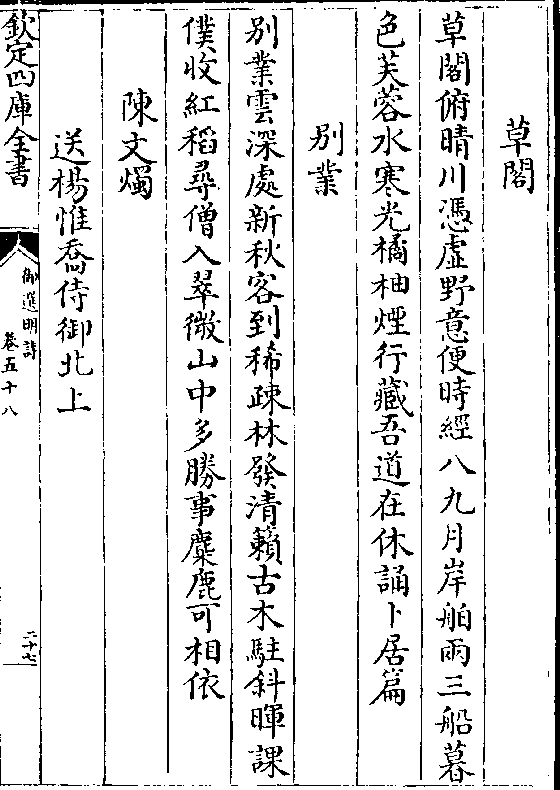 草閣
草閣俯晴川憑虛野意便時經八九月岸舶兩三船暮
色芙蓉水寒光橘柚煙行藏吾道在休誦卜居篇
別業
別業雲深處新秋客到稀疎林發清籟古木駐斜暉課
僕收紅稻尋僧入翠微山中多勝事麋鹿可相依
陳文燭
送楊惟喬侍御北上
欽定四庫全書
御選明詩
卷五十八
二十七